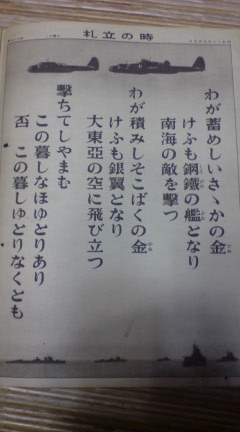 時の立札
わが蓄めしいさゝかの金
かね
けふも鋼鐵の艦となり
かね ふね
南海の敵を撃つ
わが積みしそこばくの金
かね
けふも銀翼となり
大東亞の空に飛び立つ
擊ちてしやまむ
この暮しなほゆとりあり
否 この暮しゆとりなくとも